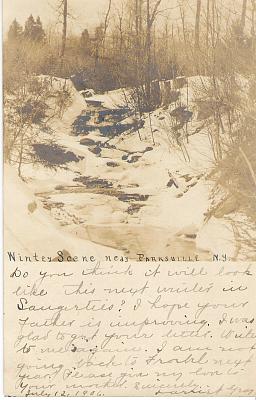 Winter Scene near PARKSVILLE N.Y.
Do you think it will look
like this next winter in
Saugerties? I hope your
Father is improving. I was
glad to get your letter. Write
to me again. I am not
going back to next
year. Please give my love to
your mother. Sincerely,
July 12, 1906. Harriet Gray